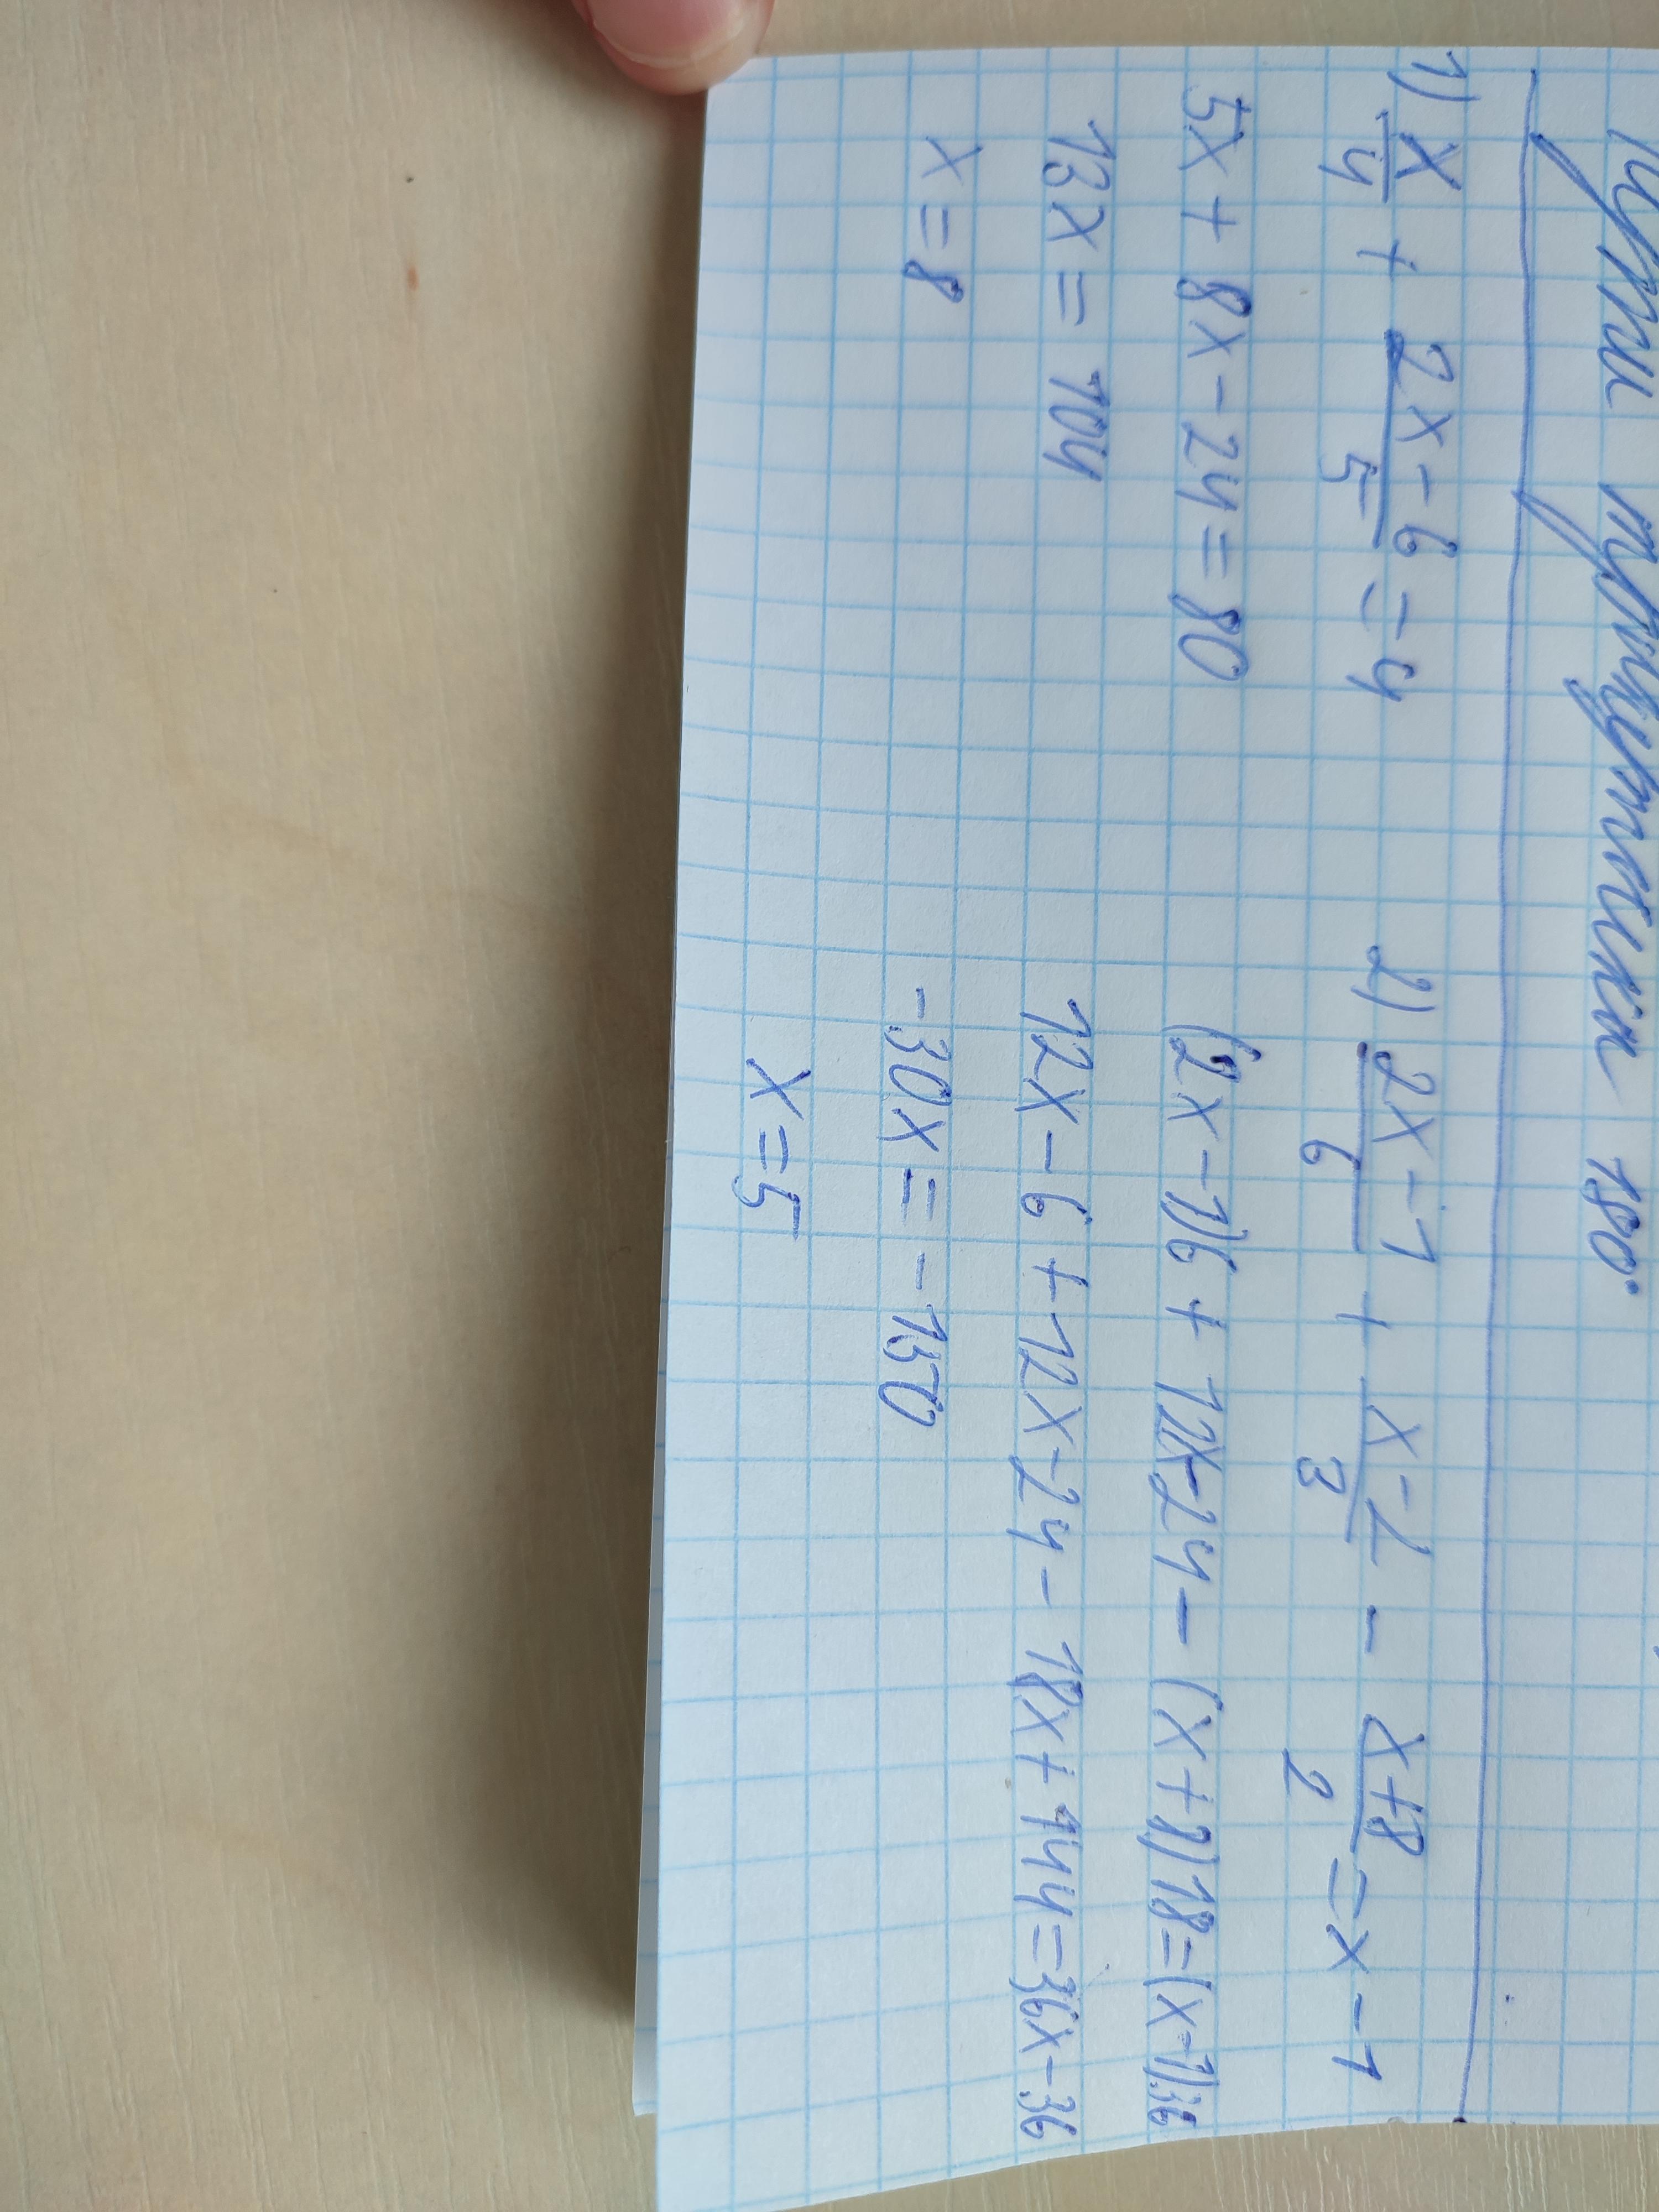 трикутника 180°
1) x/4 + 2x-6/5 = 4
5x + 8x - 24 = 80
13x = 104
x = 8
2) 2x-1/6 + x-2/3 - x+8/2 = x-1
(2x-1)6 + 12x-24 - (x+8)18 = (x-1)36
12x-6+12x-24-18x+144=36x-36
-30x = -150
x = 5